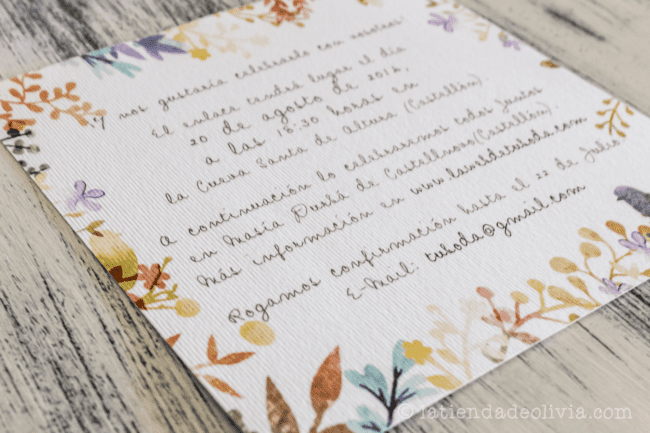 ¡Y nos gustaría celebrarlo con vosotros!
El enlace tendrá lugar el día
20 de agosto de 2016,
a las 18:30 horas en
la Cueva Santa de Altura (Castellón).
A continuación lo celebraremos todos juntos
en Masía Durbá de Castellnovo(Castellón).
Más información en www.lawebdetuboda.com
Rogamos confirmación hasta el 22 de Julio
E-Mail: tuboda@gmail.com
© latiendadeolivia.com